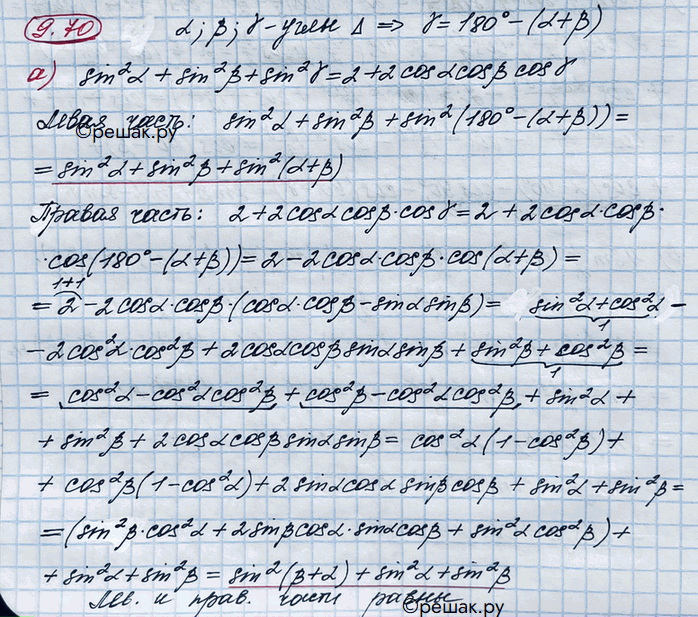 9.70 α; β; γ - углы Δ ⇒ γ = 180° - (α+β)
а) sin²α + sin²β + sin²γ = 2 + 2 cosα cosβ cosγ
Левая часть: sin²α + sin²β + sin²(180° - (α+β)) =
©решак.ру
= sin²α + sin²β + sin²(α+β)
Правая часть: 2 + 2 cosα cosβ · cosγ = 2 + 2 cosα · cosβ ·
· cos(180° - (α+β)) = 2 - 2 cosα · cosβ · cos(α+β) =
1+1
= 2 - 2 cosα · cosβ · (cosα · cosβ - sinα sinβ) = sin²α + cos²α -
1
- 2 cos²α · cos²β + 2 cosα cosβ sinα sinβ + sin²β + cos²β =
1
= cos²α - cos²α cos²β + cos²β - cos²α cos²β + sin²α +
+ sin²β + 2 cosα cosβ sinα sinβ = cos²α (1 - cos²β) +
+ cos²β (1 - cos²α) + 2 sinα cosα sinβ cosβ + sin²α + sin²β =
= (sin²β · cos²α + 2 sinβ cosα · sinα cosβ + sin²α cos²β) +
+ sin²α + sin²β = sin²(β+α) + sin²α + sin²β
Лев. и прав. части равны
©решак.ру